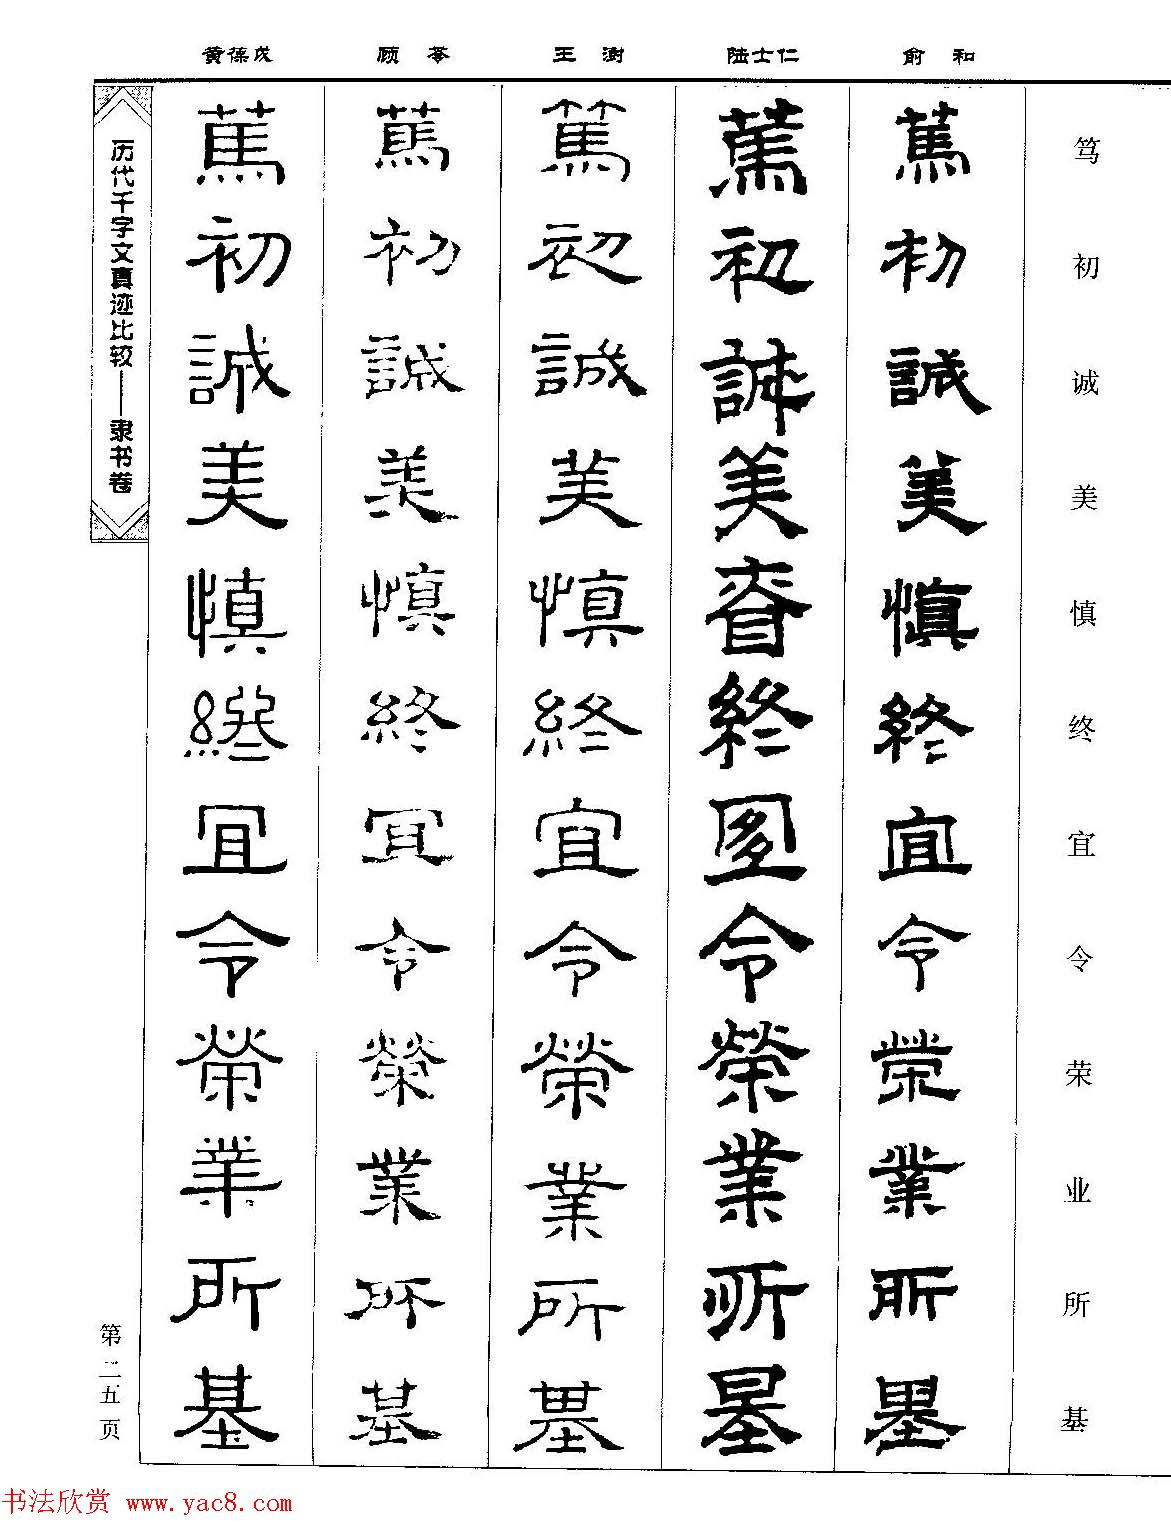 黄葆戊 顾苓 王澍 陆士仁 俞和
笃初诚美慎终宜令荣业所基
篤初誠美慎終宜令榮業所基
篤初誠美昚終宐令榮業所基
篤初誠美慎終宜令榮業所基
篤初誠美慎終宜令榮業所基
篤初誠美慎終宜令榮業所基
历代千字文真迹比较——隶书卷
第二五页
书法欣赏 www.yac8.com